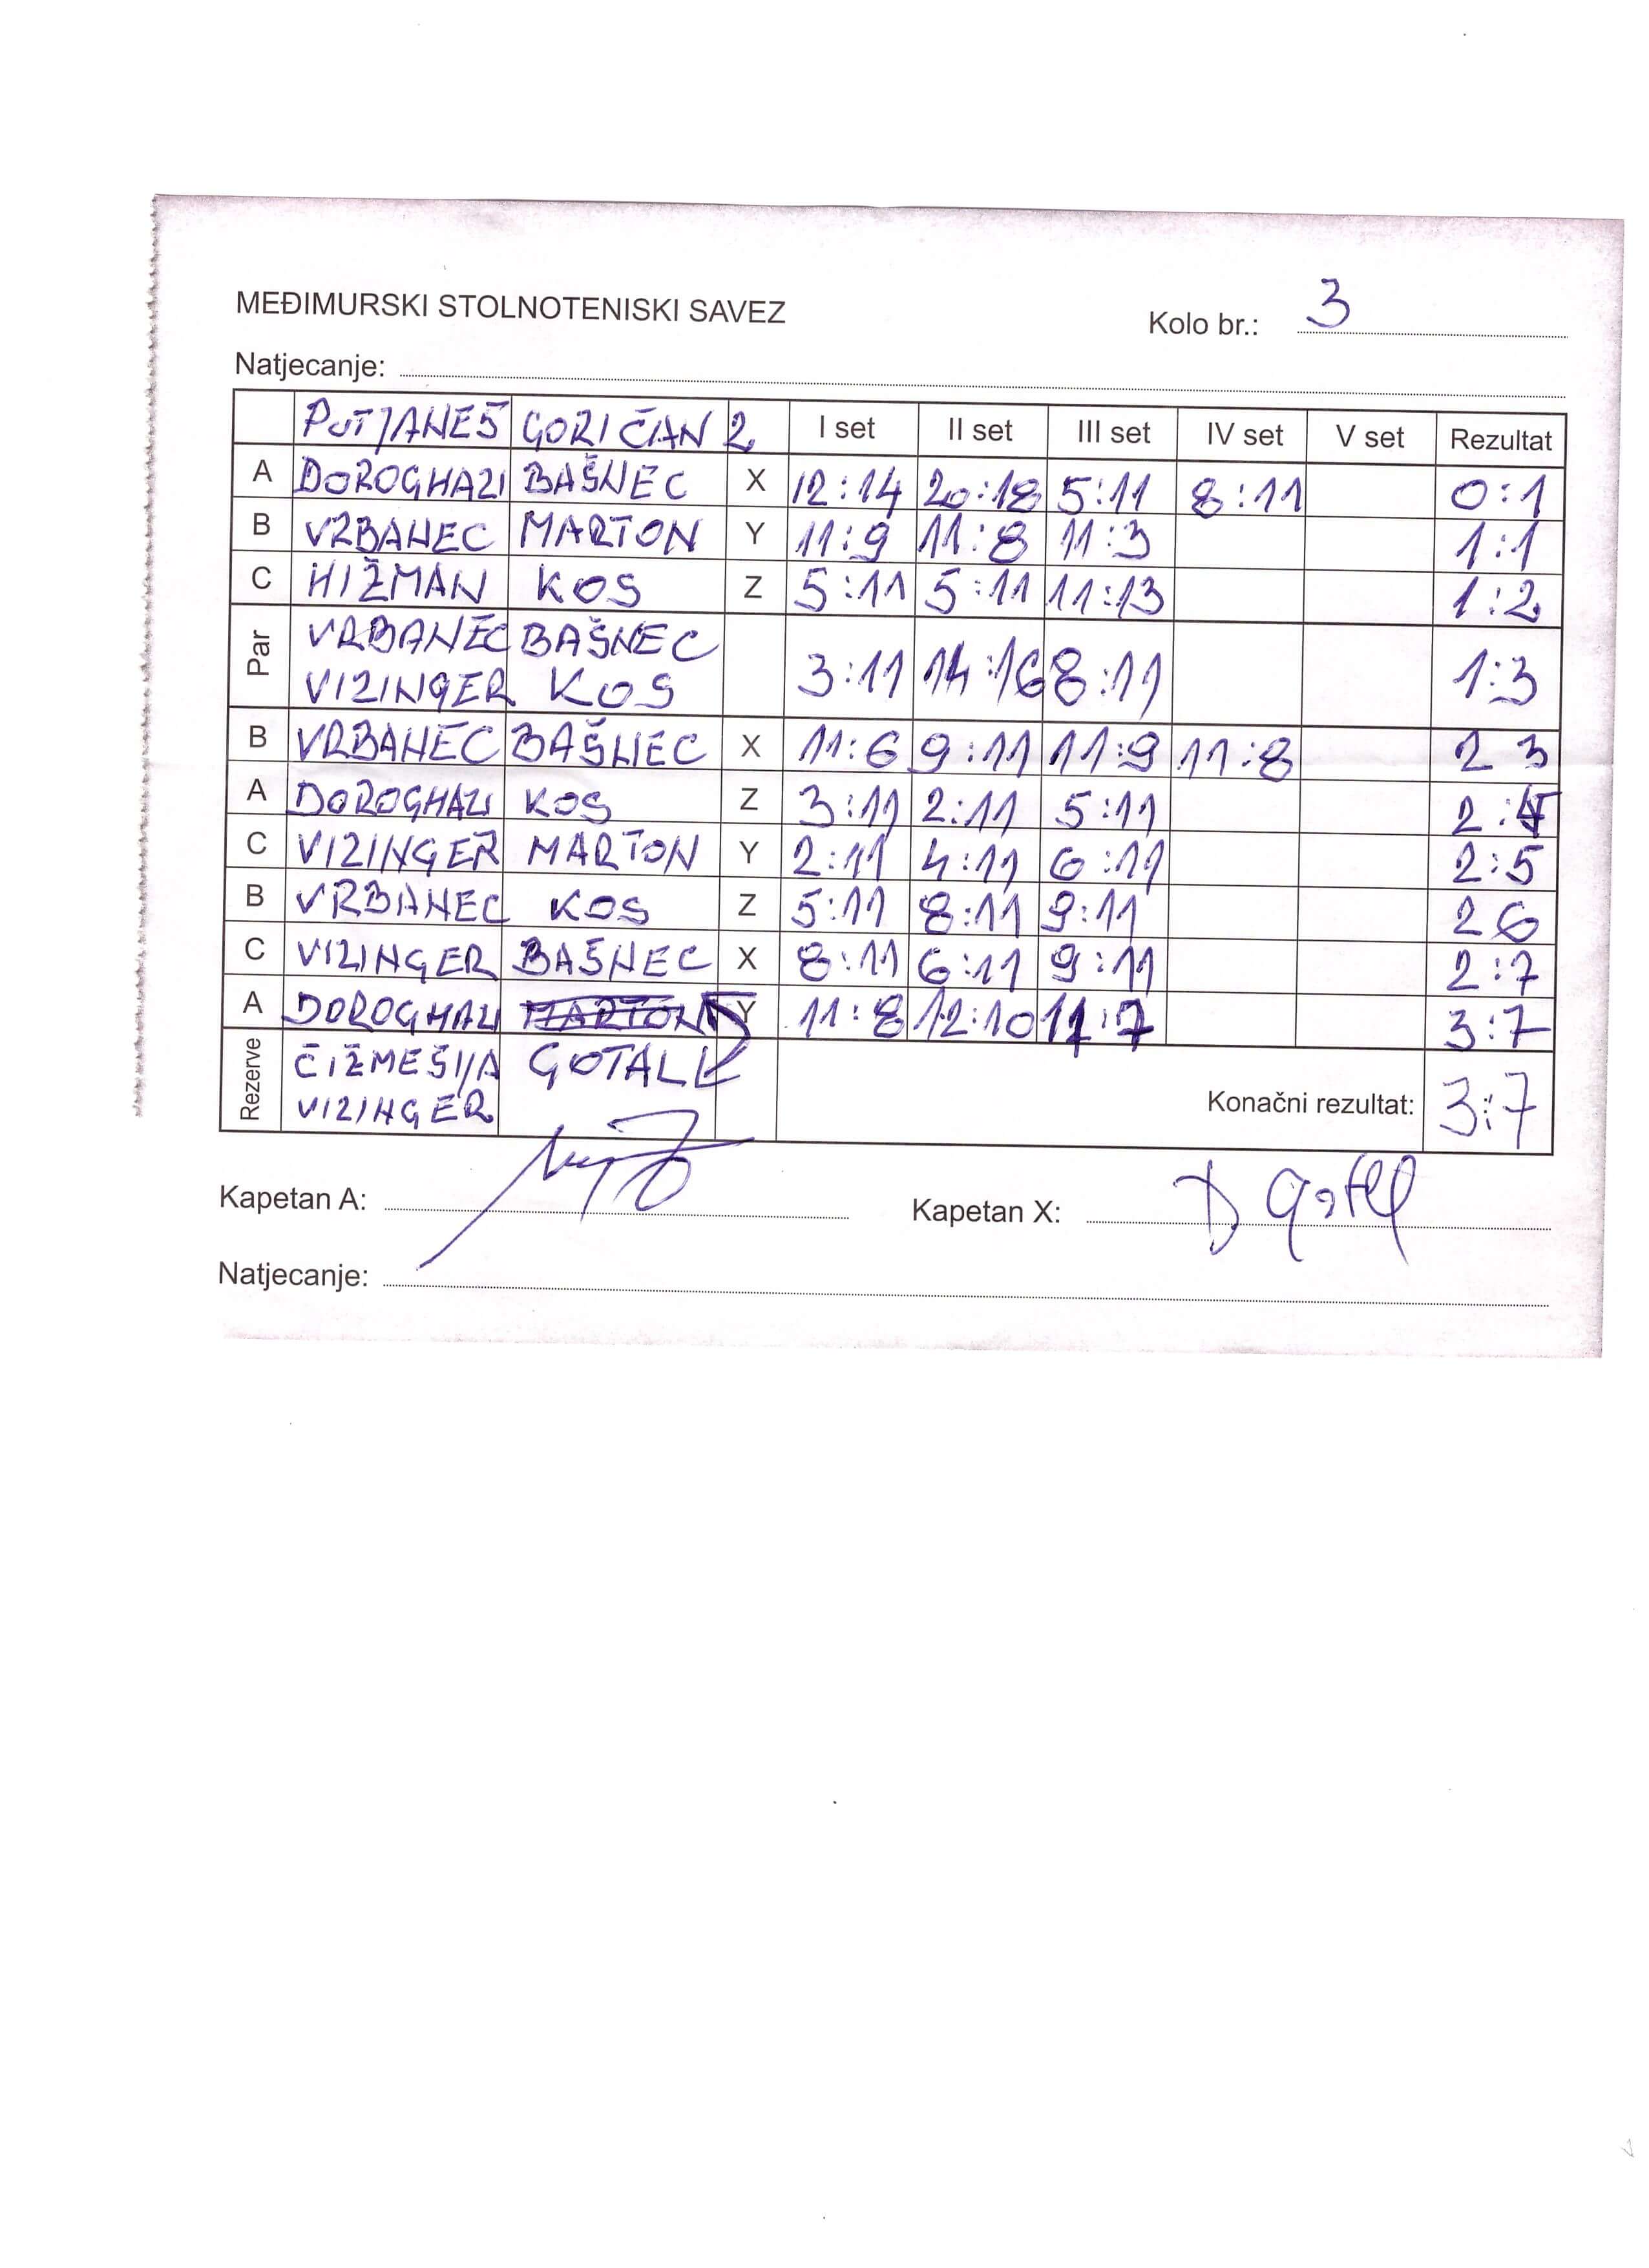 MEĐIMURSKI STOLNOTENISKI SAVEZ Kolo br.: 3
Natjecanje:
PUTJANE5 GORIČAN 2 I set II set III set IV set V set Rezultat
A DOROGHAZI BAŠNEC X 12:14 20:18 5:11 8:11 0:1
B VRBANEC MARTON Y 11:9 11:8 11:3 1:1
C HIŽMAN KOS Z 5:11 5:11 11:13 1:2
Par VRBANEC BAŠNEC
VIZINGER KOS 3:11 14:16 8:11 1:3
B VRBANEC BAŠNEC X 11:6 9:11 11:9 11:8 2 3
A DOROGHAZI KOS Z 3:11 2:11 5:11 2:4
C VIZINGER MARTON Y 2:11 4:11 6:11 2:5
B VRBANEC KOS Z 5:11 8:11 9:11 2 6
C VIZINGER BAŠNEC X 8:11 6:11 9:11 2:7
A DOROGHAZI MARTON Y 11:8 12:10 11:7 3:7
Rezerve ČIŽMEŠIJA GOTAL
VIZINGER Konačni rezultat: 3:7
Kapetan A: Kapetan X: D Gotal
Natjecanje: